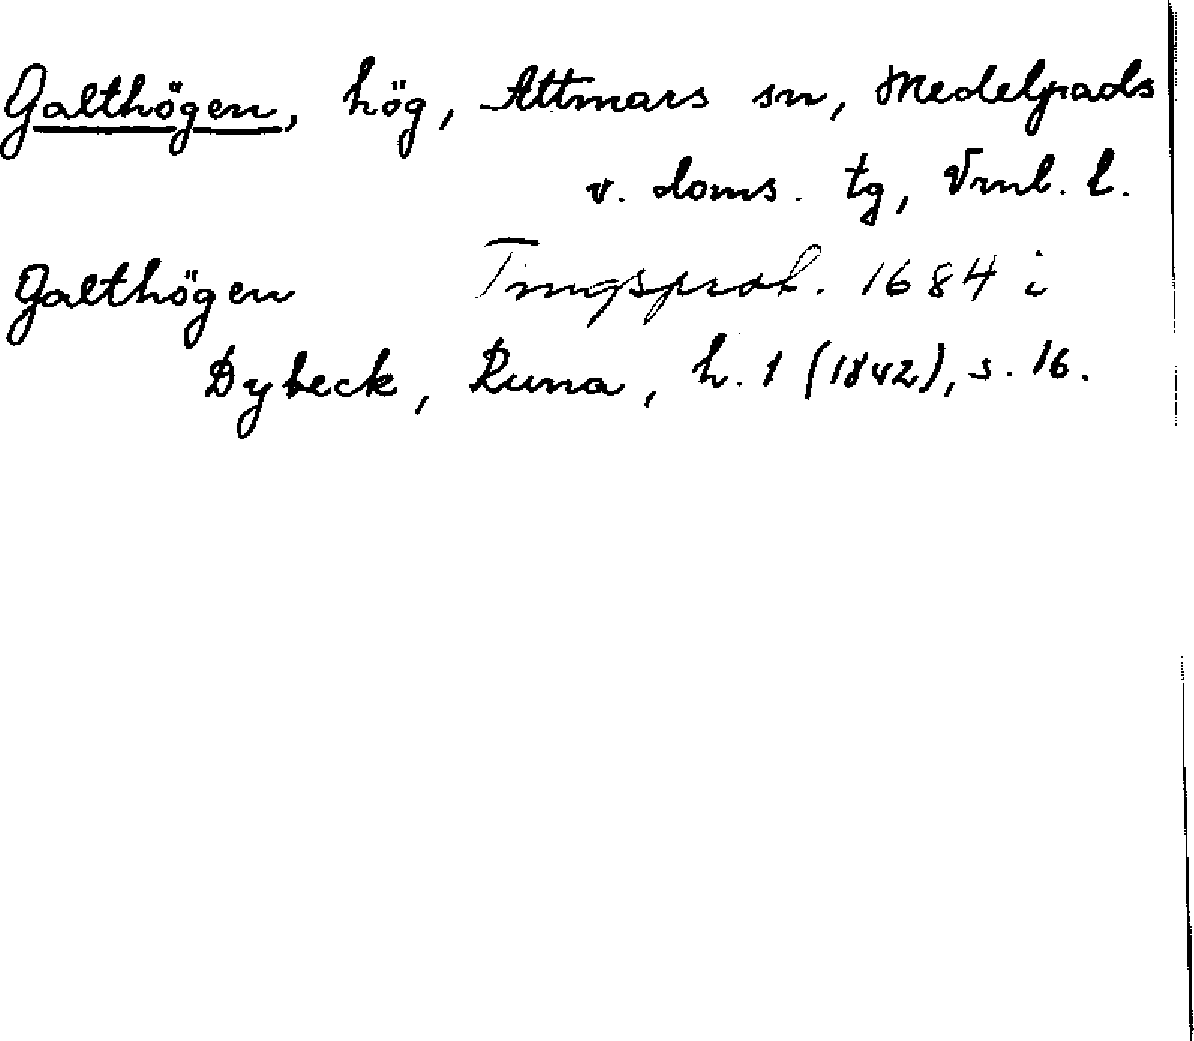 Galthögen, hög, Attmars sn, Medelpads
v. doms. tg, Vrnl. l.
Galthögen Tingsprot. 1684 i
Dybeck, Runa, h. 1 (1842), s. 16.